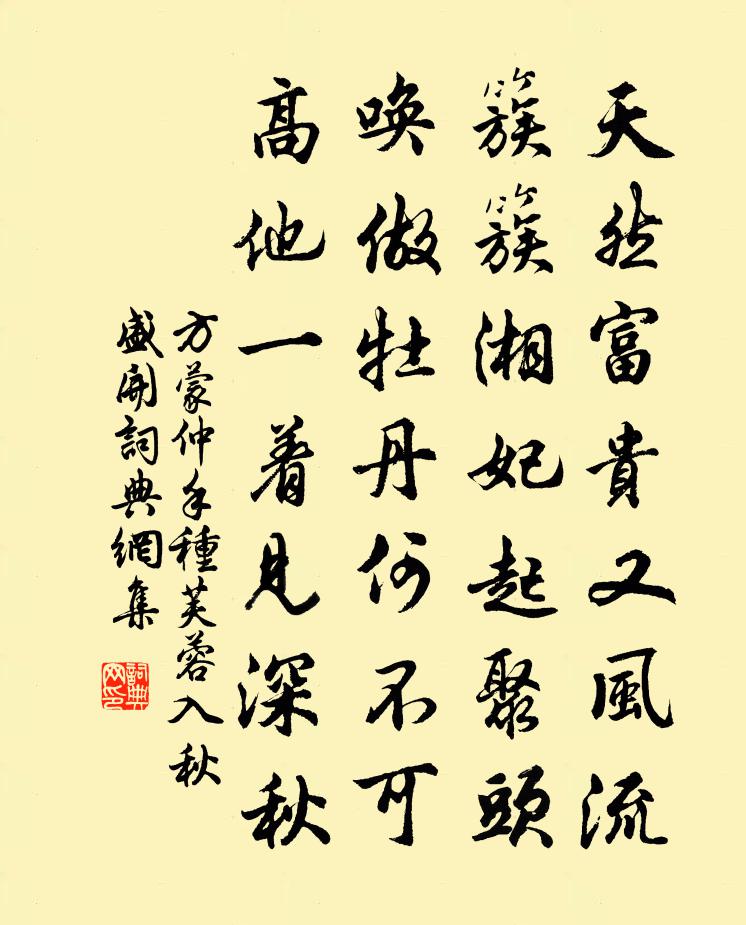 天然富貴又風流
簇簇湘妃起聚頭
喚做牡丹何不可
高他一着見深秋
方蒙仲手種芙蓉入秋
盛開詞典網集
詞典
网印